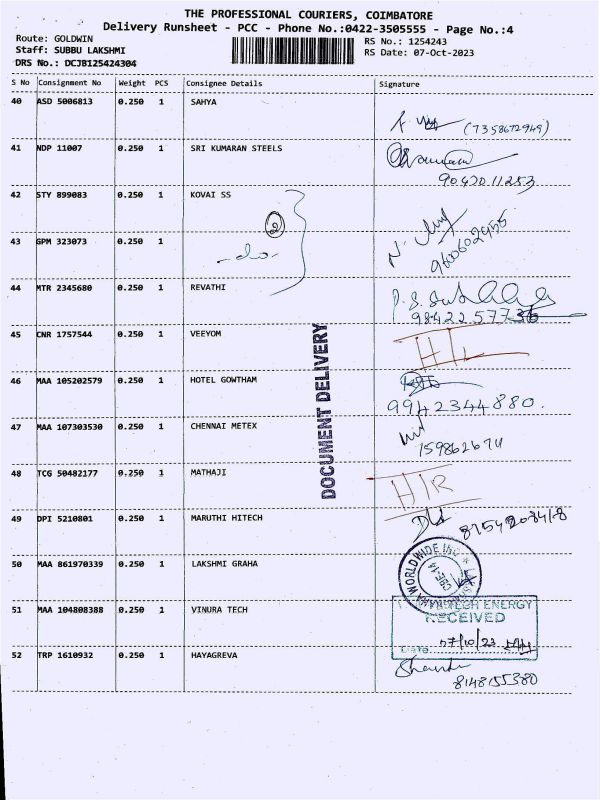 THE PROFESSIONAL COURIERS, COIMBATORE
Delivery Runsheet - PCC - Phone No.:0422-3505555 - Page No.:4
Route: GOLDWIN RS No.: 1254243
Staff: SUBBU LAKSHMI RS Date: 07-Oct-2023
DRS No.: DCJB125424304
S No Consignment No Weight PCS Consignee Details Signature
40 ASD 5006813 0.250 1 SAHYA
(7358672949)
41 NDP 11007 0.250 1 SRI KUMARAN STEELS
9042011253
42 STY 899083 0.250 1 KOVAI SS
2
43 GPM 323073 0.250 1
-do-
9600602955
44 MTR 2345680 0.250 1 REVATHI
9842257736
45 CNR 1757544 0.250 1 VEEYOM
46 MAA 105202579 0.250 1 HOTEL GOWTHAM
9942344880.
47 MAA 107303530 0.250 1 CHENNAI METEX
159862674
DOCUMENT DELIVERY
48 TCG 50482177 0.250 1 MATHAJI
49 DPI 5210801 0.250 1 MARUTHI HITECH
50 MAA 861970339 0.250 1 LAKSHMI GRAHA
WORLDWIDE INC
CBE-14
51 MAA 104808388 0.250 1 VINURA TECH
ENERGY
RECEIVED
Date 07/10/23
52 TRP 1610932 0.250 1 HAYAGREVA
8148155380